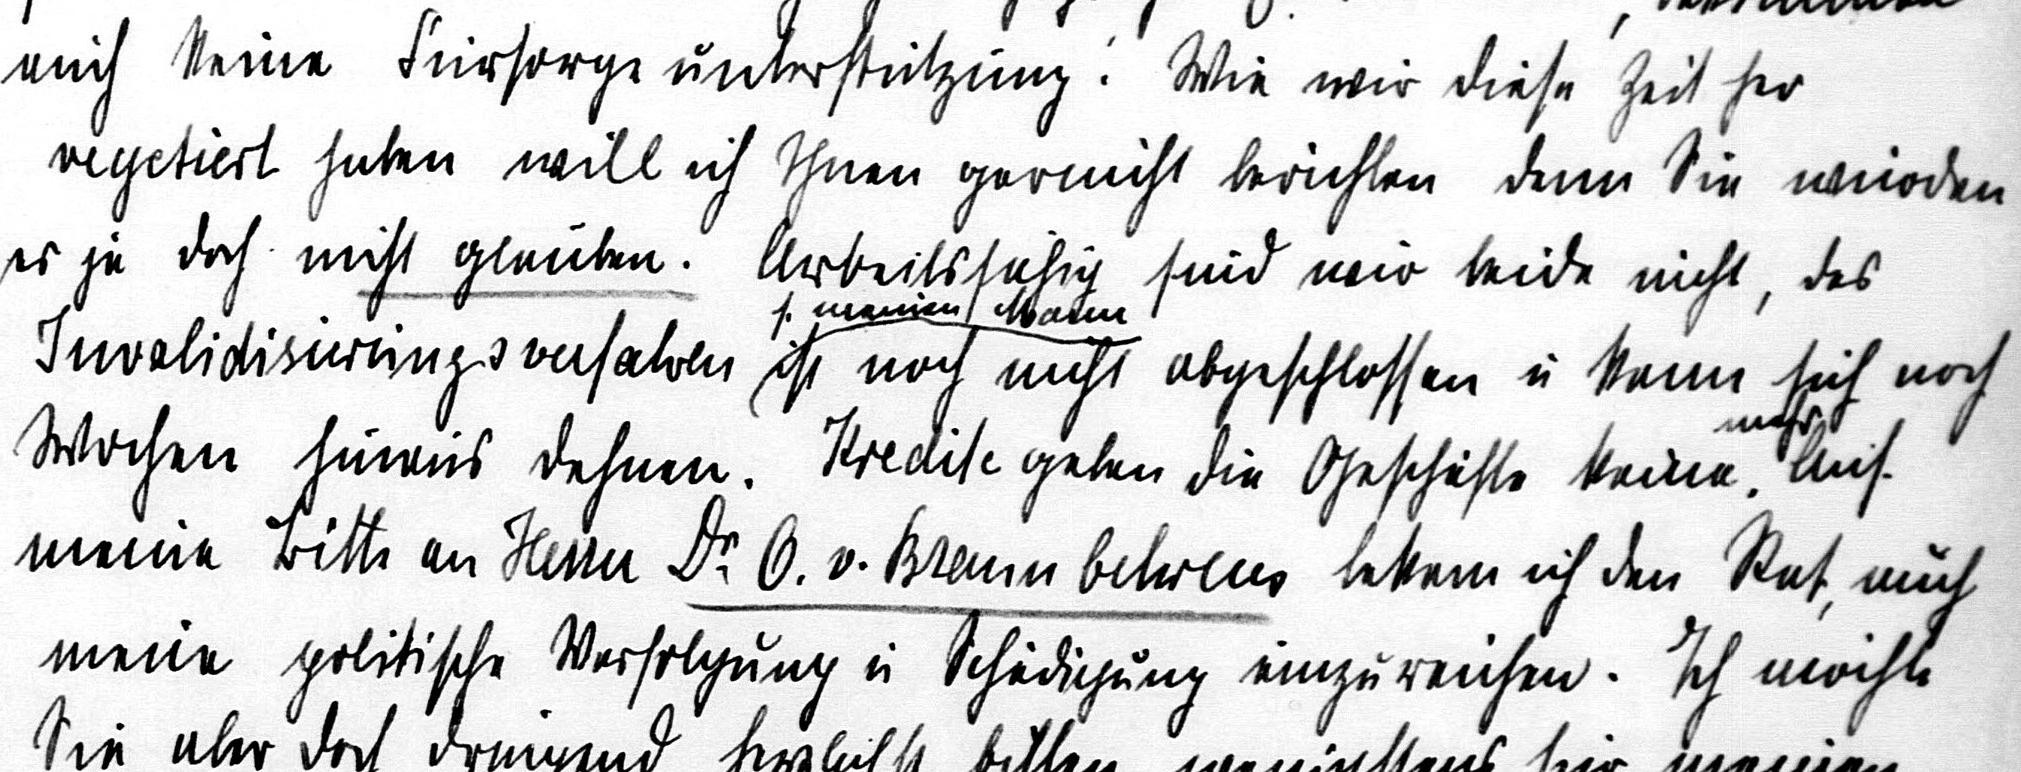 auch keine Fürsorgeunterstützung! Wie wir diese Zeit her
vegetiert haben will ich Ihnen garnicht berichten denn Sie würden
es ja doch nicht glauben. Arbeitsfähig sind wir beide nicht, das
f. meinen Mann
Invalidisierungsverfahren ist noch nicht abgeschlossen u kann sich noch
mehr
Wochen hinaus dehnen. Kredite geben die Geschäfte keine. Auf
meine Bitte an Herrn Dr. O. v. Brannbehrens bekam ich den Rat, auch
meine politische Verfolgung u Schädigung einzureichen. Ich möchte
Sie aber doch dringend herzlichst bitten wenigstens für meinen